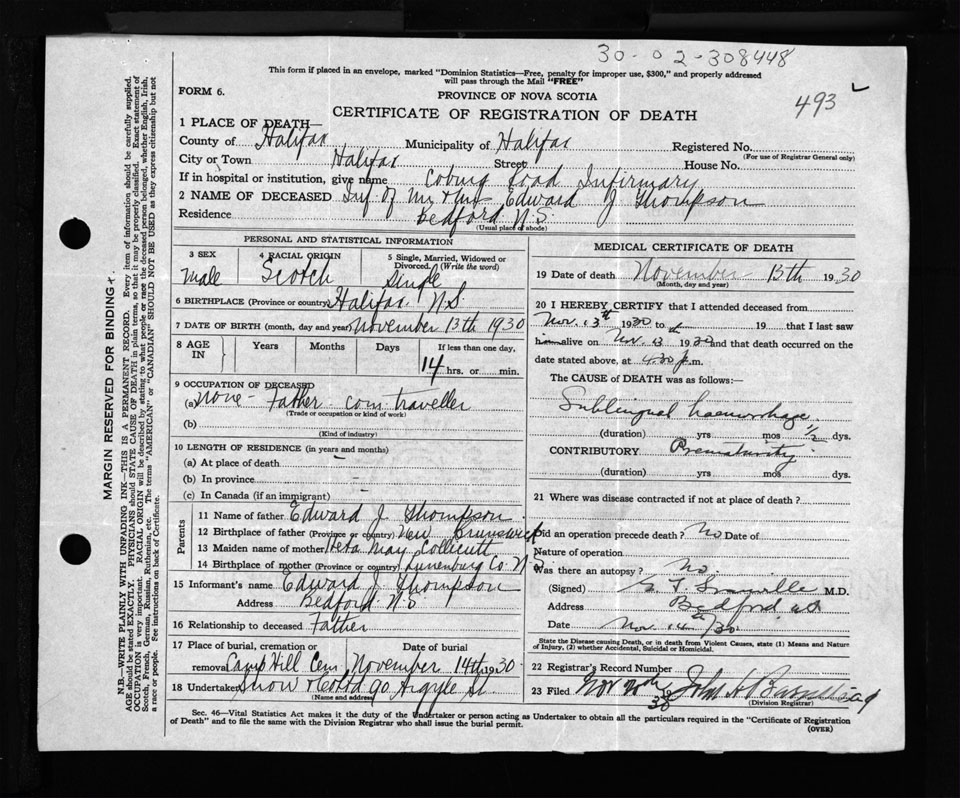 30-02-308448
This form if placed in an envelope, marked "Dominion Statistics—Free, penalty for improper use, $300," and properly addressed
will pass through the Mail "FREE"
FORM 6.
PROVINCE OF NOVA SCOTIA
493
CERTIFICATE OF REGISTRATION OF DEATH
1 PLACE OF DEATH—
County of Halifax Municipality of Halifax Registered No.
(For use of Registrar General only)
City or Town Halifax Street House No.
If in hospital or institution, give name Coburg Road Infirmary
2 NAME OF DECEASED Inf. of Mr & Mrs Edward J Thompson
Residence Bedford N.S.
(Usual place of abode)
PERSONAL AND STATISTICAL INFORMATION
3 SEX Male
4 RACIAL ORIGIN Scotch
5 Single, Married, Widowed or Divorced. (Write the word) Single
6 BIRTHPLACE (Province or country) Halifax N.S.
7 DATE OF BIRTH (month, day and year) November 13th 1930
8 AGE IN Years Months Days If less than one day,
14 hrs. or min.
9 OCCUPATION OF DECEASED
(a) none - Father com traveller
(Trade or occupation or kind of work)
(b)
(Kind of industry)
10 LENGTH OF RESIDENCE (in years and months)
(a) At place of death –
(b) In province -
(c) In Canada (if an immigrant) -
Parents
11 Name of father Edward J. Thompson
12 Birthplace of father (Province or country) New Brunswick
13 Maiden name of mother Veta May Collicutt
14 Birthplace of mother (Province or country) Lunenburg Co. N.S
15 Informant's name Edward J. Thompson
Address Bedford N.S
16 Relationship to deceased Father
17 Place of burial, cremation or Date of burial
removal Camp Hill Cem November 14th 1930
18 Undertaker Snow & Co Ltd 90 Argyle St.
(Name and address)
MEDICAL CERTIFICATE OF DEATH
19 Date of death November 13th 1930
(Month, day and year)
20 I HEREBY CERTIFY that I attended deceased from
Nov. 13th 1930 to 19 that I last saw
him alive on Nov 13 1930 and that death occurred on the
date stated above, at 4.30 p.m.
The CAUSE of DEATH was as follows:—
Sublingual haemorrhage
(duration) yrs mos ½ dys.
CONTRIBUTORY Prematurity
(duration) yrs mos dys.
21 Where was disease contracted if not at place of death?
Did an operation precede death? No Date of
Nature of operation
Was there an autopsy? No.
(Signed) M.D.
Address Bedford NS
Date Nov. 14th/30
State the Disease causing Death, or in death from Violent Causes, state (1) Means and Nature
of Injury, (2) whether Accidental, Suicidal or Homicidal.
22 Registrar's Record Number
23 Filed Nov 20th 1930 John H Barnstead
(Division Registrar)
Sec. 46—Vital Statistics Act makes it the duty of the Undertaker or person acting as Undertaker to obtain all the particulars required in the "Certificate of Registration
of Death" and to file the same with the Division Registrar who shall issue the burial permit.
(OVER)
MARGIN RESERVED FOR BINDING
N.B.—WRITE PLAINLY WITH UNFADING INK—THIS IS A PERMANENT RECORD. Every item of information should be carefully supplied.
AGE should be stated EXACTLY. PHYSICIANS should STATE CAUSE OF DEATH in plain terms, so that it may be properly classified. Exact statement of
OCCUPATION is very important. RACIAL ORIGIN will be described by stating to what people or race the deceased person belonged, whether English, Irish,
Scotch, French, German, Russian, Ruthenian, etc. The terms "AMERICAN" or "CANADIAN" SHOULD NOT BE USED as they express citizenship but not
a race or people. See instructions on back of Certificate.